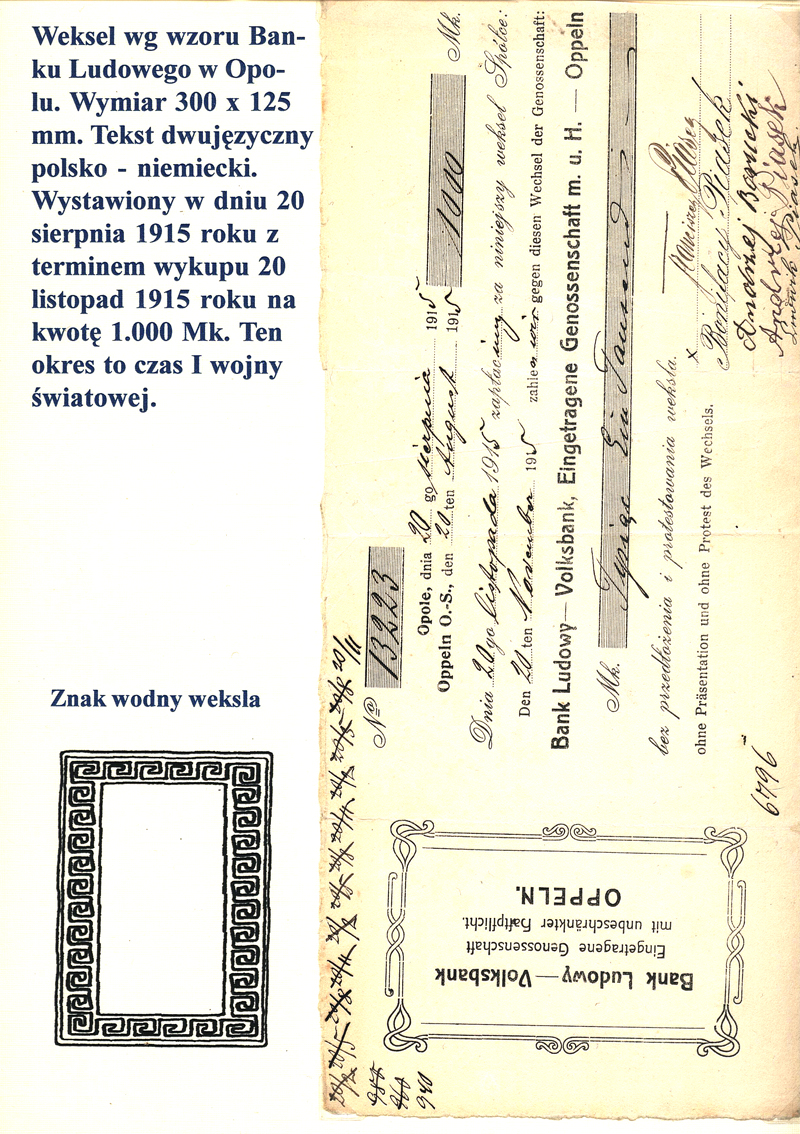 Weksel wg wzoru Ban-
ku Ludowego w Opo-
lu. Wymiar 300 x 125
mm. Tekst dwujęzyczny
polsko - niemiecki.
Wystawiony w dniu 20
sierpnia 1915 roku z
terminem wykupu 20
listopad 1915 roku na
kwotę 1.000 Mk. Ten
okres to czas I wojny
światowej.
Znak wodny weksla
No 13223
Mk. 1000
Opole, dnia 20 go sierpnia 1915
Oppeln O.-S., den 20 ten August 1915
Dnia 20go listopada 1915 zapłacimy za niniejszy weksel Spółce:
Den 20 ten November 1915 zahlen wir gegen diesen Wechsel der Genossenschaft:
Bank Ludowy — Volksbank, Eingetragene Genossenschaft m. u. H. — Oppeln
Mk. Tysiąc Ein Tausend
bez przedłożenia i protestowania weksla.
ohne Präsentation und ohne Protest des Wechsels.
x
Bonifacy Piasek
Andrzej
Andrzej Piasek
Piasek
6796
Bank Ludowy — Volksbank
Eingetragene Genossenschaft
mit unbeschränkter Haftpflicht.
OPPELN.
940